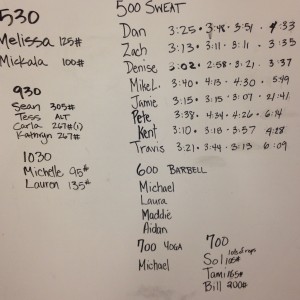 530
Melissa 125#
Mickala 100#
930
Sean 305#
Tess ALT
Carla 267#(1)
Kathryn 267#
1030
Michelle 95#
Lauron 135#
500 SWEAT
Dan 3:25 · 3:48 · 3:51 · 4:33
Zach 3:13 · 3:11 · 3:11 · 3:35
Denise 3:02 · 2:58 · 3:21 · 3:37
Mike L. 3:40 · 4:13 · 4:30 · 5:49
Jamie 3:15 · 3:15 · 3:07
Pete 3:38 · 4:34 · 4:26 · 6:14
Kent 3:10 · 3:18 · 3:57 · 4:28
Travis 3:21 · 3:44 · 3:13 · 6:09
600 BARBELL
Michael
Laura
Maddie
Aidan
700 YOGA
Michael
700
Sol 105#
Tami 165#
Bill 200#